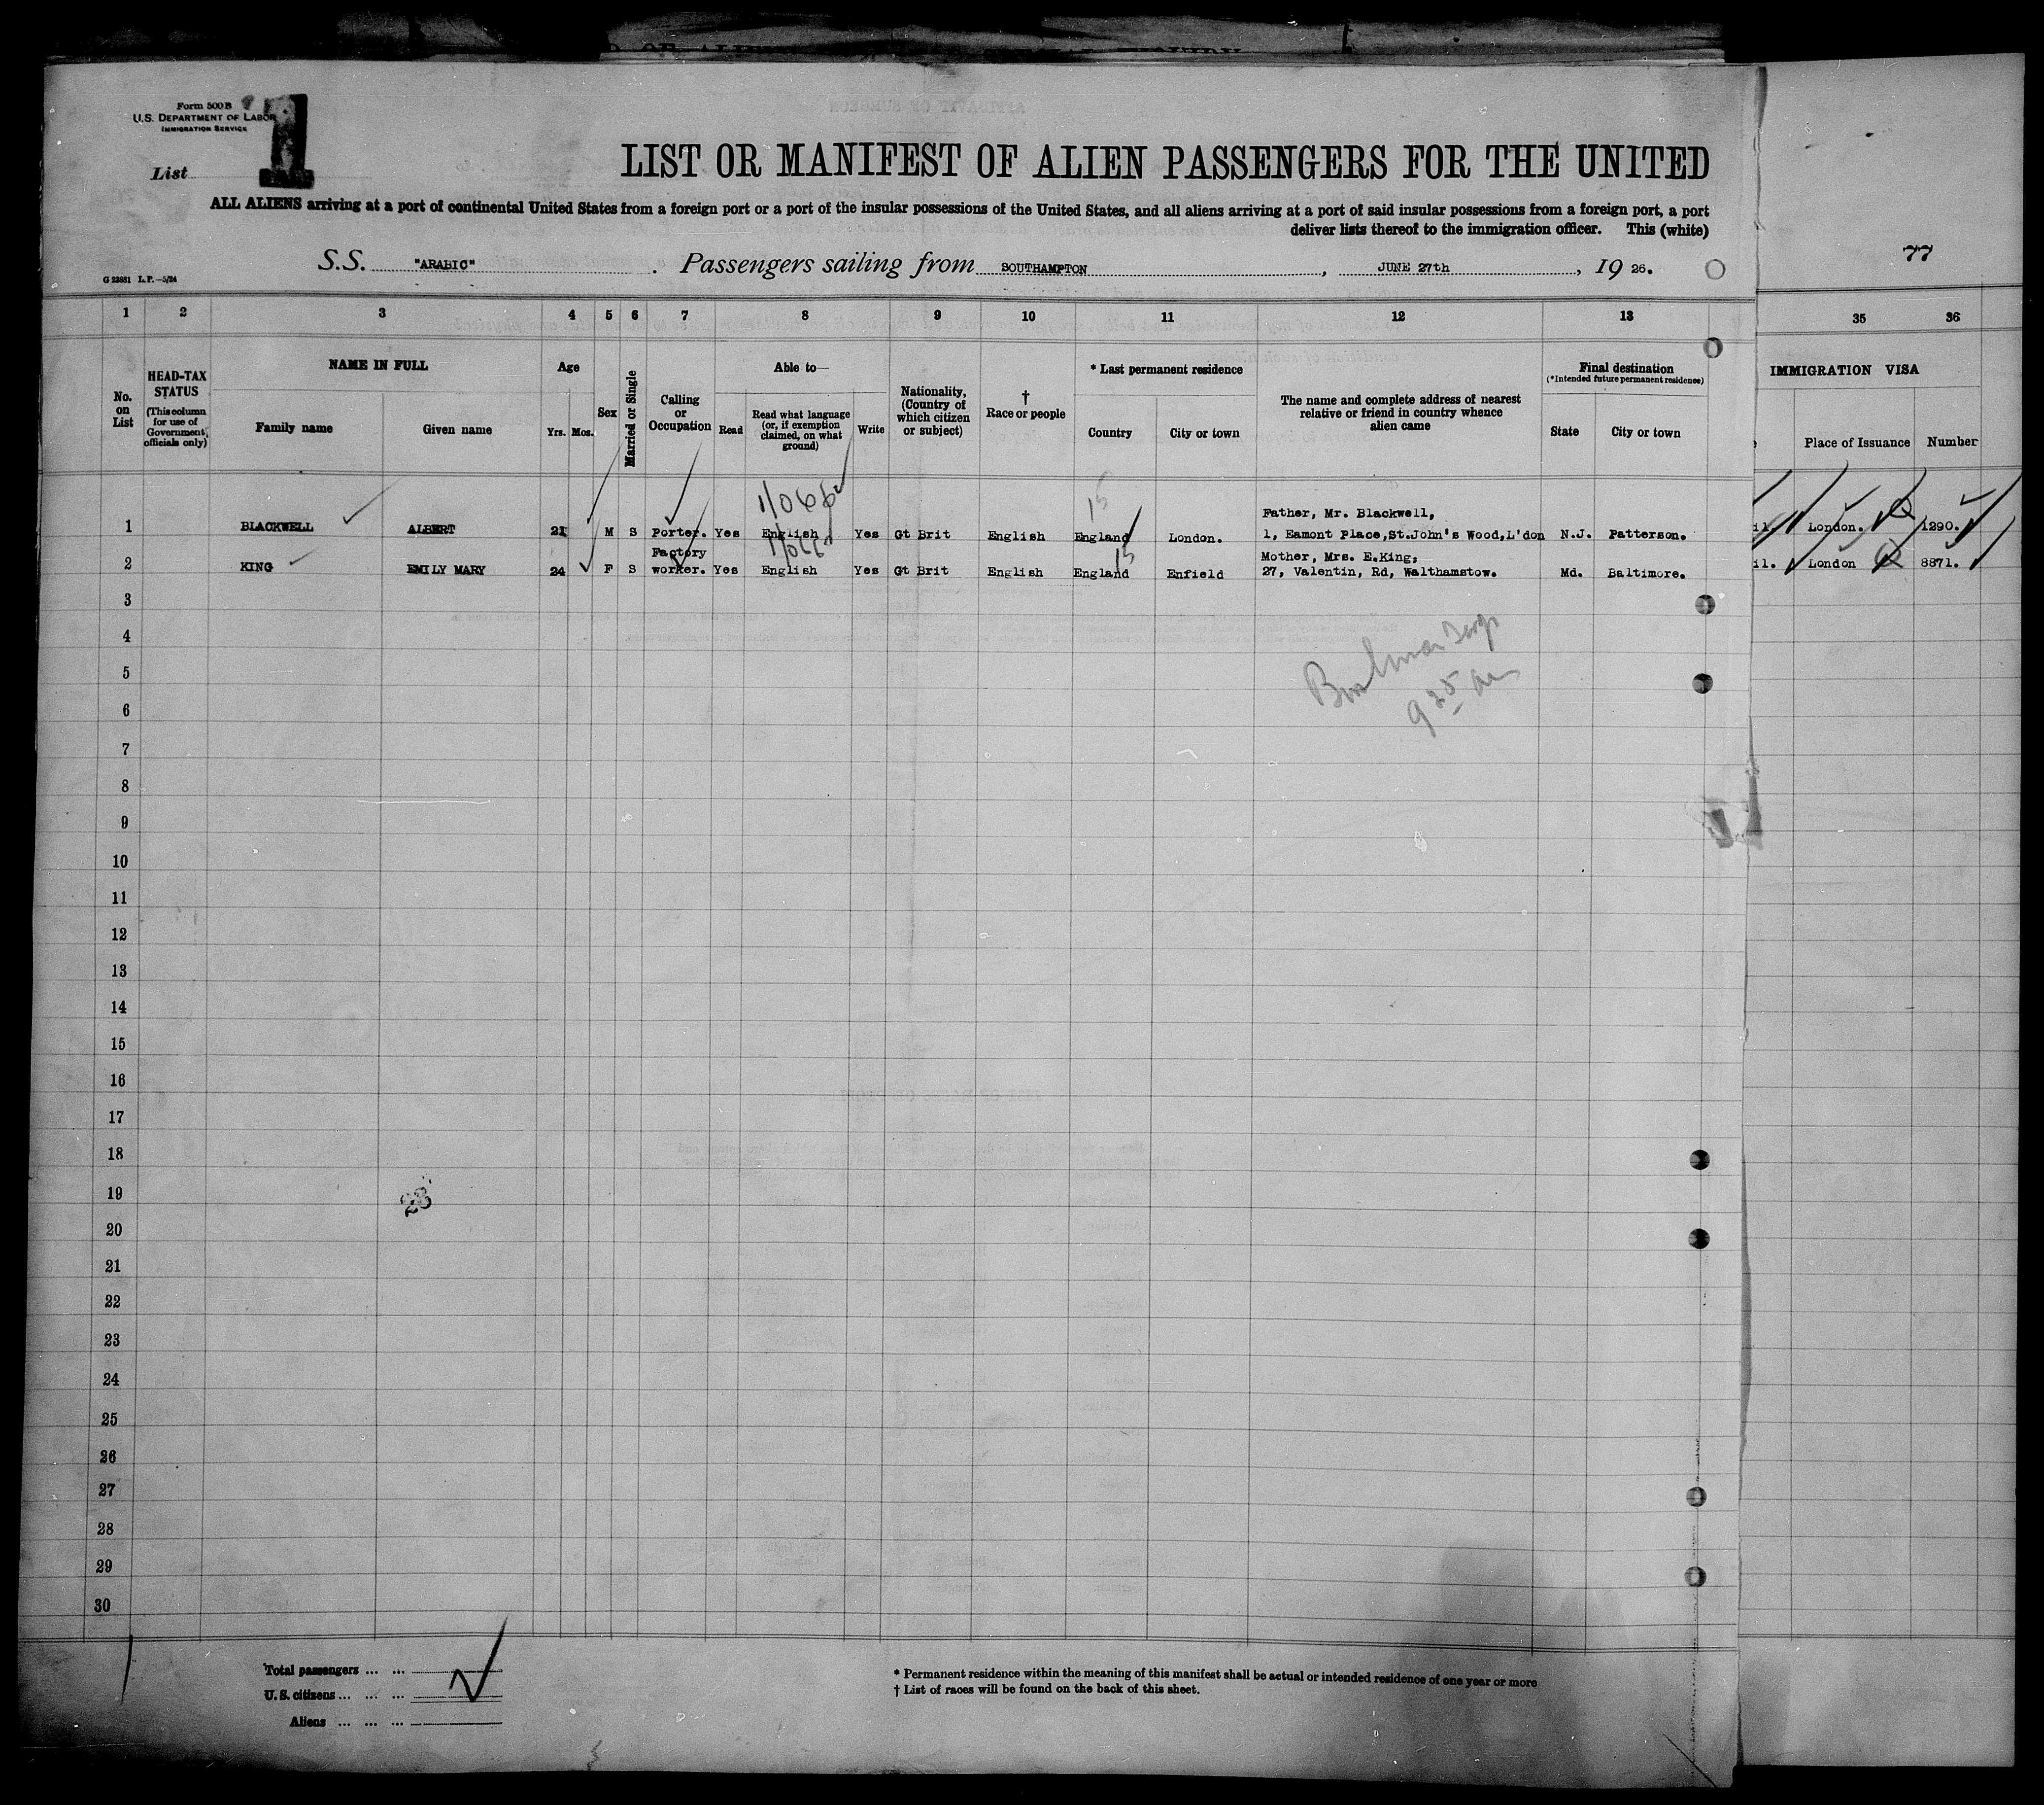 Form 500 B
U.S. DEPARTMENT OF LABOR
IMMIGRATION SERVICE
List 1
LIST OR MANIFEST OF ALIEN PASSENGERS FOR THE UNITED
ALL ALIENS arriving at a port of continental United States from a foreign port or a port of the insular possessions of the United States, and all aliens arriving at a port of said insular possessions from a foreign port, a port
deliver lists thereof to the immigration officer. This (white)
S.S. "ARABIC" . Passengers sailing from SOUTHAMPTON , JUNE 27th , 19 26.
77
G 23881 L.P.—5/24
1 2 3 4 5 6 7 8 9 10 11 12 13 35 36
No. on List
HEAD-TAX STATUS (This column for use of Government officials only)
NAME IN FULL
Family name Given name
Age
Yrs. Mos.
Sex
Married or Single
Calling or Occupation
Able to—
Read
Read what language (or, if exemption claimed, on what ground)
Write
Nationality, (Country of which citizen or subject)
† Race or people
* Last permanent residence
Country City or town
The name and complete address of nearest relative or friend in country whence alien came
Final destination
(*Intended future permanent residence)
State City or town
IMMIGRATION VISA
Place of Issuance Number
15
Father, Mr. Blackwell,
1 BLACKWELL ALBERT 21 M S Porter. Yes English Yes Gt Brit English England London. 1, Eamont Place,St.John's Wood,L'don N.J. Patterson. London. 1290.
Factory 15 Mother, Mrs. E.King,
2 KING EMILY MARY 24 F S worker. Yes English Yes Gt Brit English England Enfield 27, Valentin, Rd, Walthamstow. Md. Baltimore. il. London 8871.
3
4
5
6
9 25 am
7
8
9
10
11
12
13
14
15
16
17
18
19 28
20
21
22
23
24
25
26
27
28
29
30
Total passengers ... ...
U. S. citizens ... ... ...
Aliens ... ... ...
* Permanent residence within the meaning of this manifest shall be actual or intended residence of one year or more
† List of races will be found on the back of this sheet.